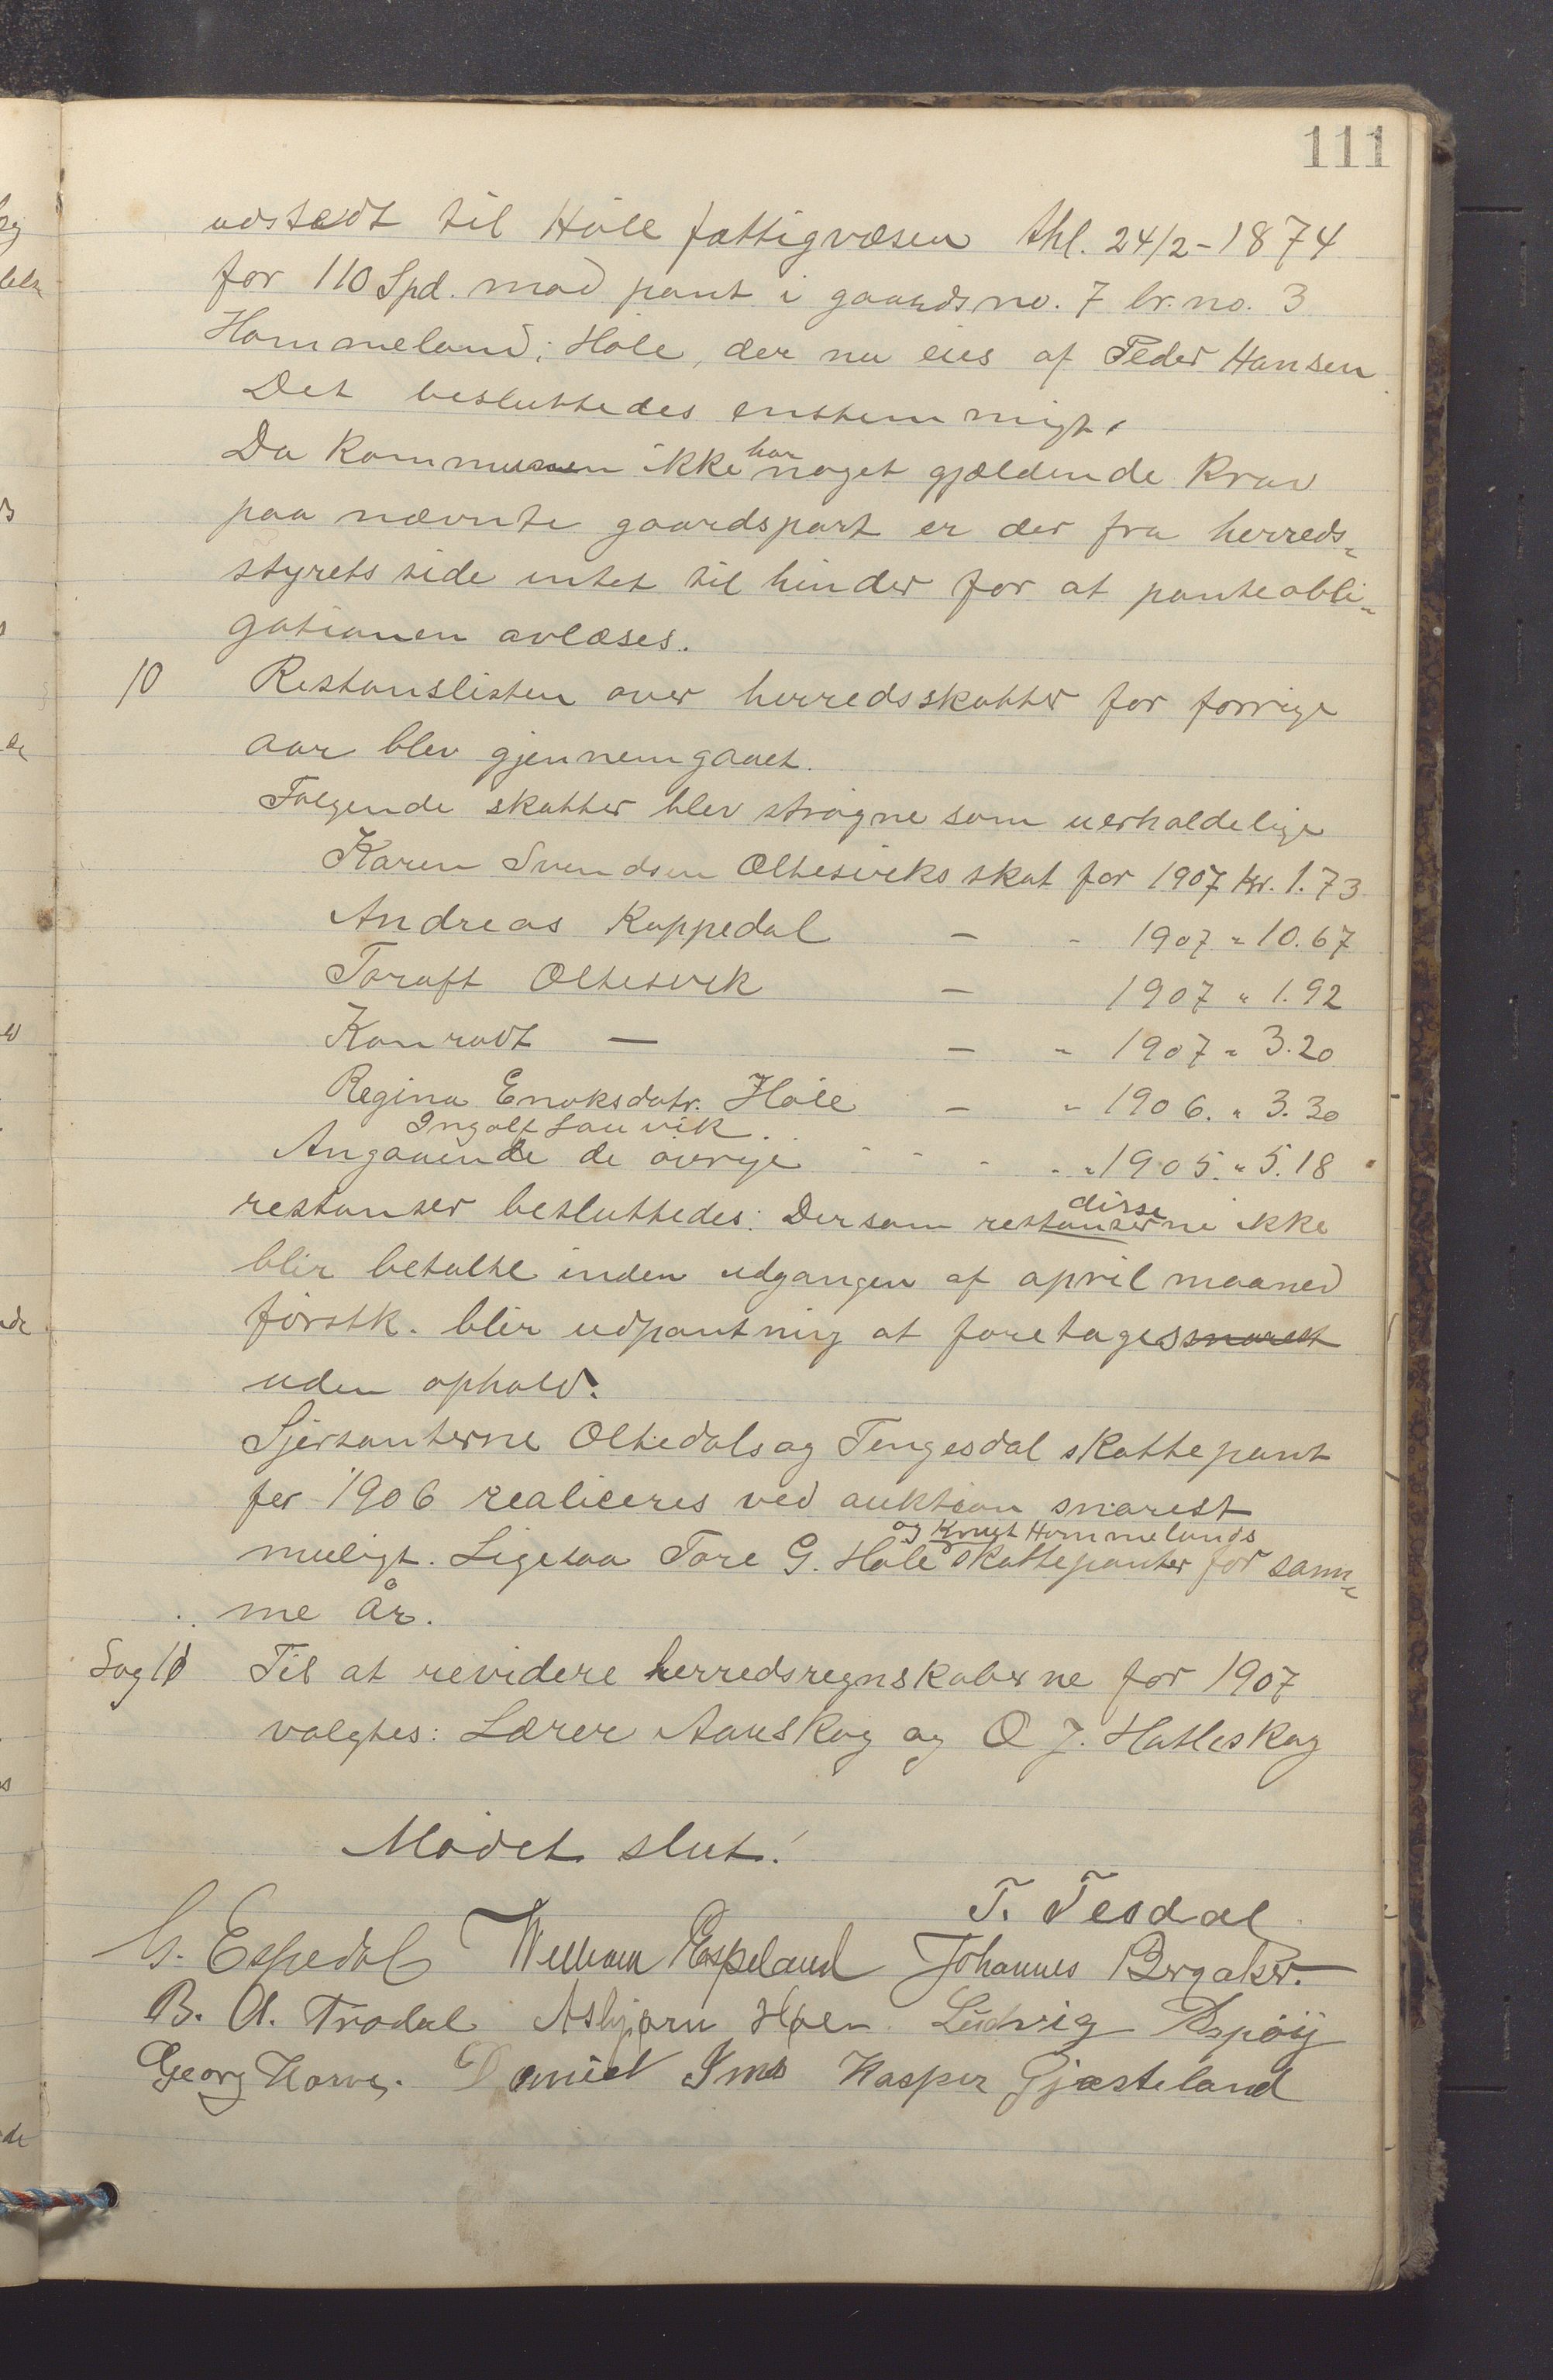 111
udstedt til Höle fattigvæsen thl. 24/2-1874
for 110 Spd. mod pant i gaardsno. 7 br. no. 3
Hommeland i Höle, der nu eies af Peder Hansen
Det besluttedes enstemmigt.
Da kommunen ikke har noget gjældende krav
paa nævnte gaardspart er der fra herreds-
styrets side intet til hinder for at panteobli-
gationen avlæses.
10 Restanslisten over herredsskatter for forrige
aar blev gjennemgaaet.
Følgende skatter blev strøgne som uerholdelige
Karen Svendsen Oltesviks skat for 1907 kr. 1.73
Andreas Kappedal — - 1907 " 10.67
Toraft Oltesvik — 1907 " 1.92
Konradt — — " 1907 " 3.20
Regina Enoksdatr. Høle — " 1906. " 3.30
Ingolf Lauvik - - - - " 1905. " 5.18
Angaaende de øvrige
restanser besluttedes: Dersom disse restanserne ikke
blir betalte inden udgangen af april maaned
förstk. blir udpantning at foretages snarest
uden ophold.
Sjersanterne Oltedals og Tengesdal skattepant
for 1906 realiceres ved auktion snarest
muligt. Ligesaa Tore G. Høle og Knut Hommelands skattepanter for sam-
me år.
Sag 11 Til at revidere herredsregnskaberne for 1907
valgtes: Lærer Aauskog og O J. Hatleskog
Mödet slut!
T. Tesdal
G. Espedal William Espeland Johannes Bergaker.
B. A. Trodal Asbjørn Høle Ludvig Espöy
Georg Norvg. Daniel Ims Kasper Gjæsteland